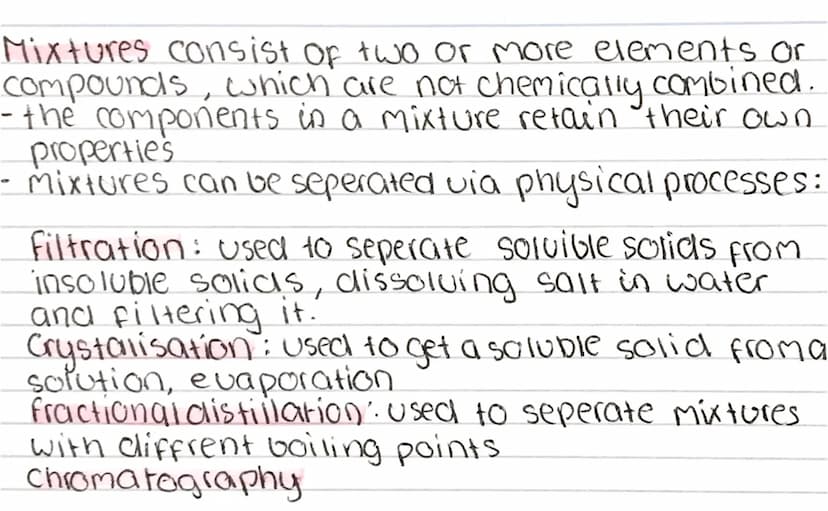 Mixtures consist of two or more elements or
compounds, which are not chemically combined.
- the components in a mixture retain their own
properties
- mixtures can be seperated via physical processes:
Filtration: used to seperate soluible solids from
insoluble solids, dissolving salt in water
and filtering it.
Crystalisation: used to get a soluble solid from a
solution, evaporation
fractional distillation: used to seperate mixtures
with diffrent boiling points
Chromatography